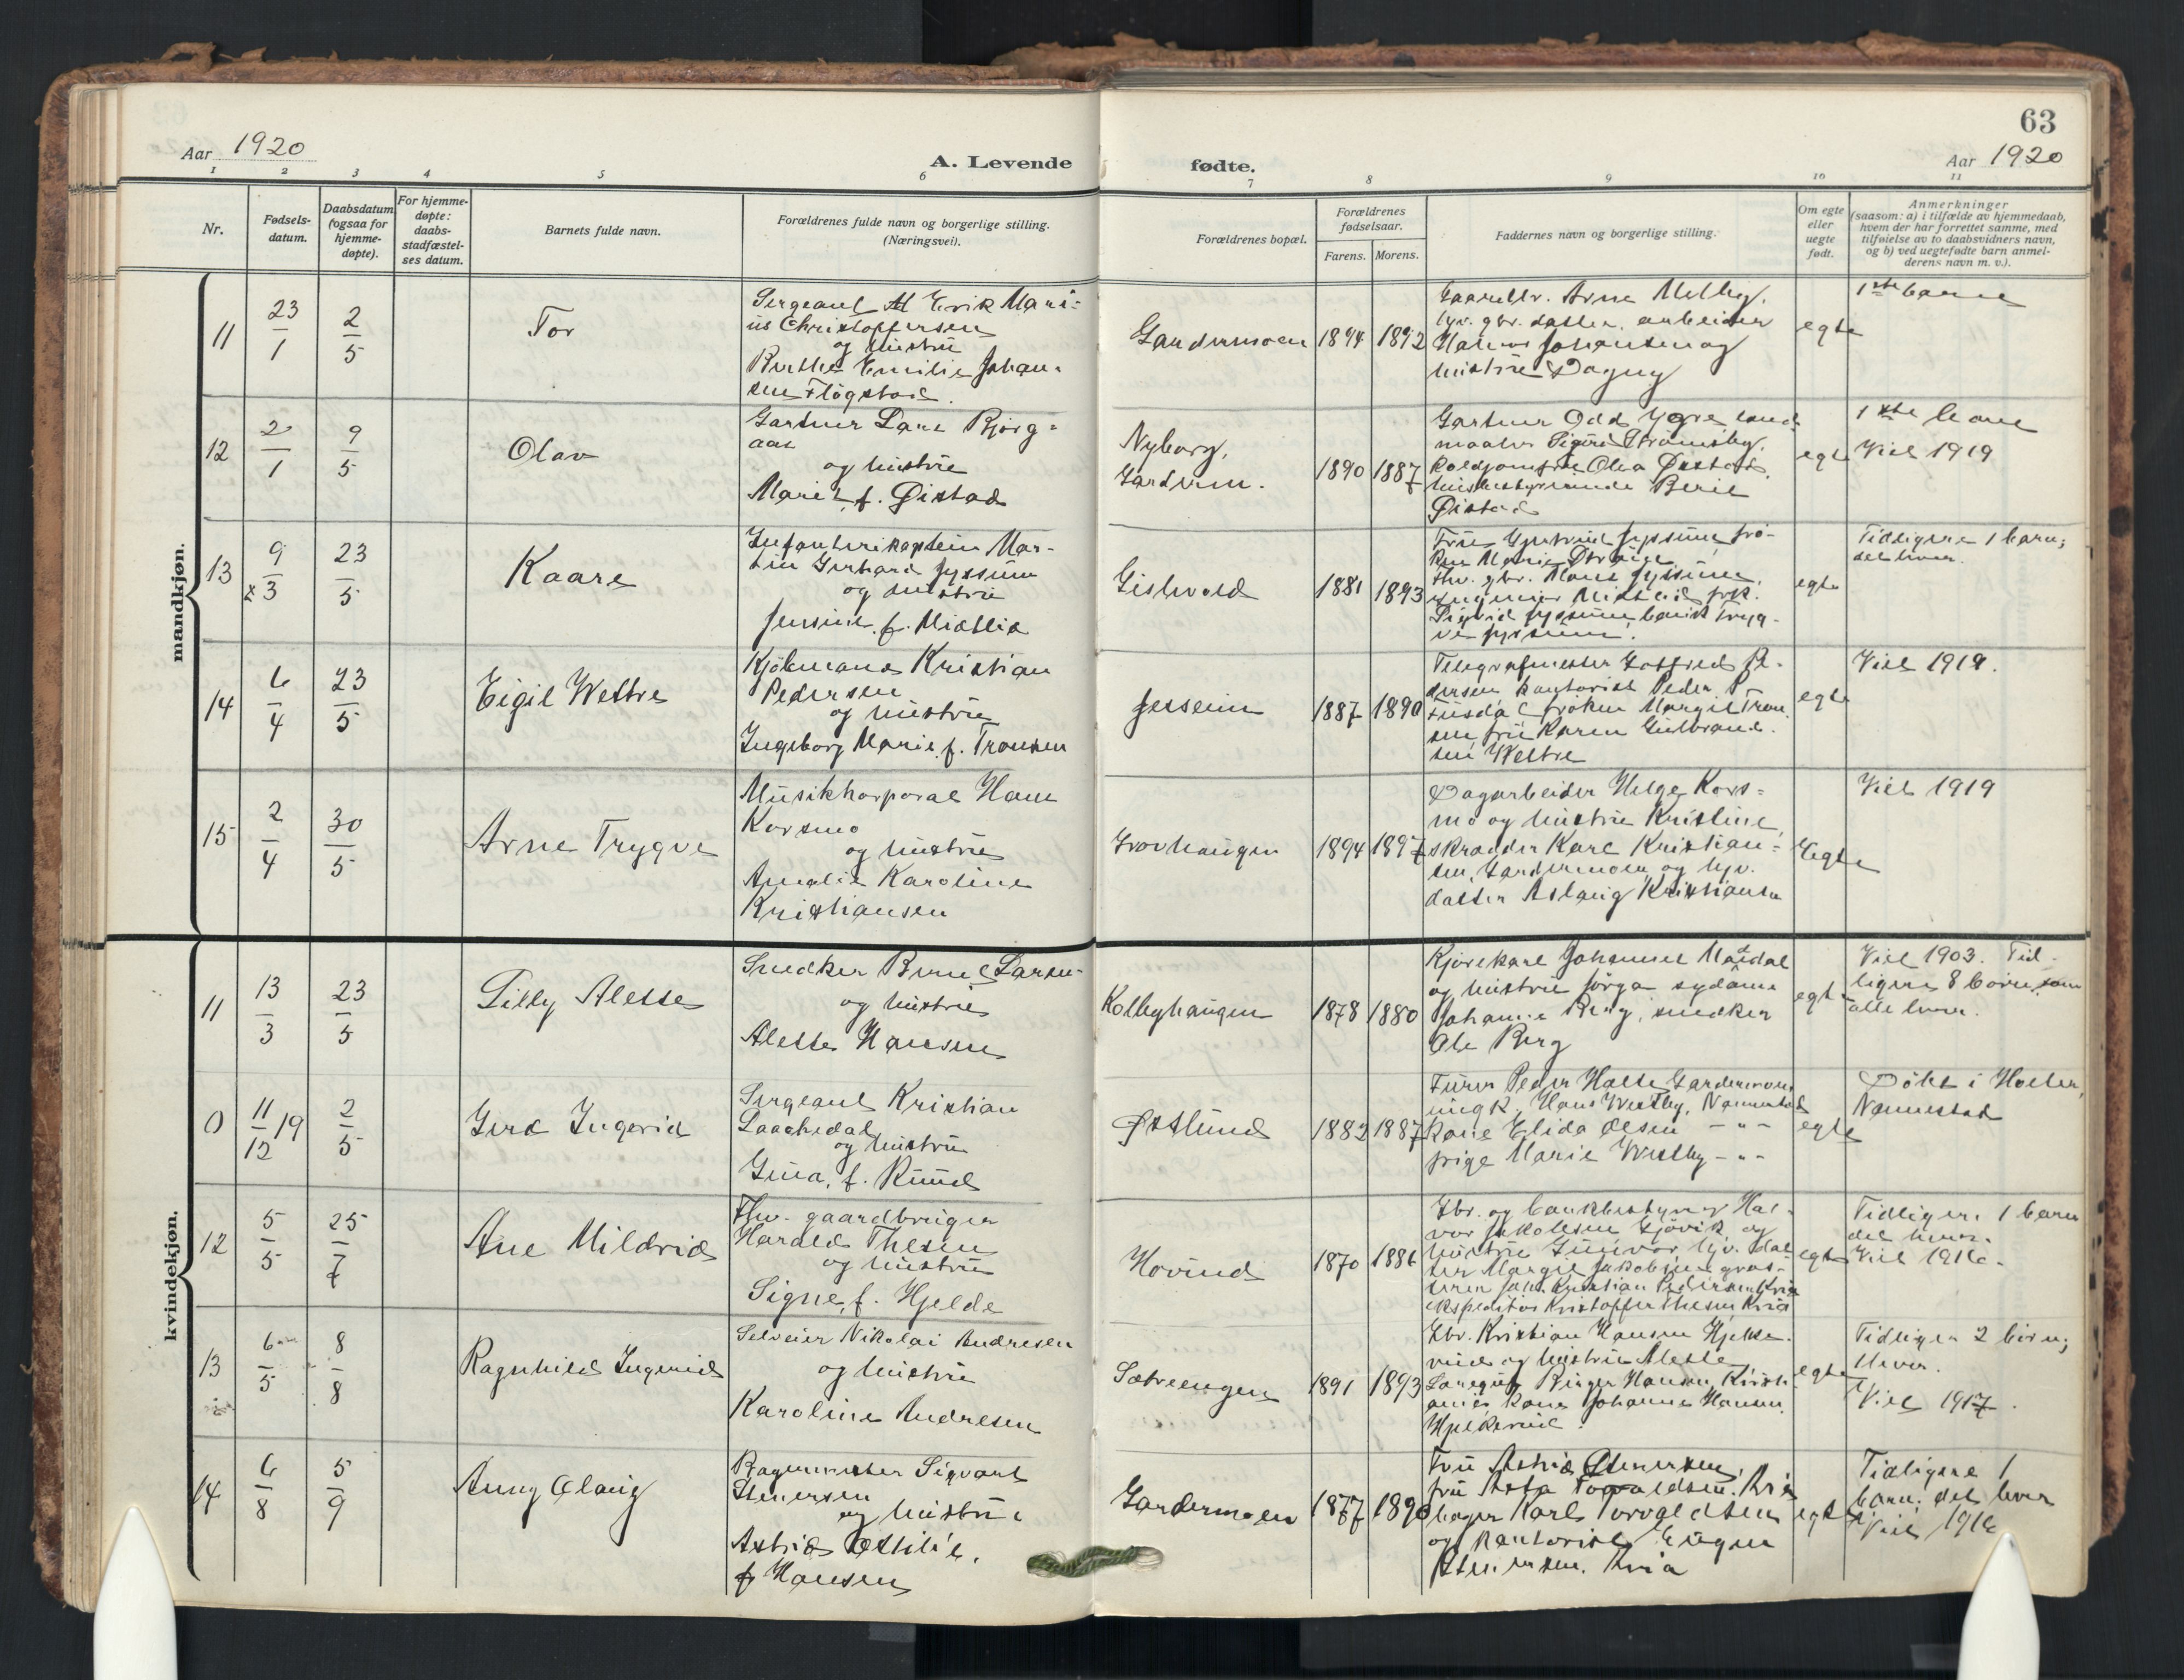 63
Aar 1920
A. Levende fødte.
Aar 1920
1 2 3 4 5 6 7 8 9 10 11
Nr.
Fødsels-
datum.
Daabsdatum
(ogsaa for
hjemme-
døpte).
For hjemme-
døpte:
daabs-
stadfæstel-
ses datum.
Barnets fulde navn.
Forældrenes fulde navn og borgerlige stilling.
(Næringsvei).
Forældrenes bopæl.
Forældrenes
fødselsaar.
Farens. Morens.
Faddernes navn og borgerlige stilling.
Om egte
eller
uegte
født.
Anmerkninger
(saasom: a) i tilfælde av hjemmedaab,
hvem der har forrettet samme, med
tilføielse av to daabsvidners navn,
og b) ved uegtefødte barn anmel-
derens navn m. v.).
mandkjøn.
11
23/1
2/5
Tor
Sergeant Erik Mari-
us Christoffersen
og hustru
Berthe Emilie Johan-
sen Fløgstad.
Gardermoen
1894 1892
Gaardbr. Arne Melby,
hjv. gbr. datter, arbeider
Johansen og
hustru Dagny
egte
1ste barn
12
2/1
9/5
Olav
Gartner Lars Bjørg-
aas
og hustru
Marie, f. Øistad
Nyborg,
Garderm.
1890 1887
Gartner Odd Ygre, land-
maaler Sigurd Strømsby,
koldjomfru Olea Øistad,
husbestyrerinde Berit
Øistad
egte
1ste barn
Viet 1919
13
9/3
23/5
Kaare
Infanterikaptein Mar-
tin Gerhard Jyssum
og hustru
Jensine, f. Mistlid
Gislevold
1881 1893
Fru Gjertrud Jyssum, frø-
ken Marie
fhv. gbr. Jyssum,
ingeniør Mistlid, frk.
Sigrid Jyssum, Tryg-
ve Jyssum.
egte
Tidligere 1 barn,
det lever.
14
6/4
23/5
Eigil Westre
Kjøbmand Kristian
Pedersen
og hustru
Ingeborg Marie, f. Tronsen
Jessheim
1887 1890
Telegrafmester Gotfred Pe-
dersen, kontorist Peder
frøken Margit Tron-
sen, fru Karen Gulbrand-
sen Westre
egte
Viet 1919.
15
2/4
30/5
Arne Trygve
Musikkorporal Hans
Korsmo
og hustru
Amalie Karoline
Kristiansen
Grovhaugen
1894 1897
Dagarbeider Helge Kors-
mo og hustru Kristine,
skrædder Karl Kristian-
sen, Gardermoen, og hjv.
datter Aslaug Kristiansen
egte
Viet 1919
kvindekjøn.
11
13/3
23/5
Lilly Alette
Snedker Bernt Larsen
og hustru
Alette Hansen
Kolbyhaugen
1878 1880
Kjørekarl Johannes
og hustru Jørga, sydame
Johanne Berg, snedker
Ole Berg
egte
Viet 1903. Tid-
ligere 8 børn, som
alle lever.
0
11/12 19
2/5
Gerd Ingerid
Sergeant Kristian
Laachedal
og hustru
Gina, f. Ruud
Østlund
1882 1887
Furer Peder Holte, Gardermoen,
ungk. Hans Westby, Nannestad
Kone Elida Olsen — " —
pige Marie Westby — " —
egte
Døbt i Holter,
Nannestad
12
5/5
25/7
Ane Mildrid
Fhv. gaardbruger
Harald Thesen
og hustru
Signe, f. Hjelde
Hovind
1870 1886
Gbr. og bankbestyrer Hal-
vor Jakobsen Gjøvik og
hustru Gunvor, hjv. dat-
ter Margit Jakobsen, gros-
serer Joh. Kristian Pedersen, Kria
ekspeditør Kristoffer Thesen, Kria
egte
Tidligere 1 barn
det lever.
Viet 1916.
13
6/5
8/8
Ragnhild Ingerid
Selveier Nikolai Andresen
og hustru
Karoline Andresen
Sætreengen
1891 1893
Gbr. Kristian Hansen
og hustru Alette,
Birger Hansen, Kristi-
ania, kone Johanne Hansen
egte
Tidligere 2 børn,
lever.
Viet 1917.
14
6/8
5/9
Anny Olaug
Bagermester Sigvart
Stenersen
og hustru
Astrid Ottilie,
f. Hansen
Gardermoen
1877 1890
Fru Astrid Stenersen,
fru Asta Torvaldsen, Kria
bager Karl Torvaldsen
og kontorist Eugen
Stenersen, Kria
egte
Tidligere 1
barn, det lever
Viet 1916